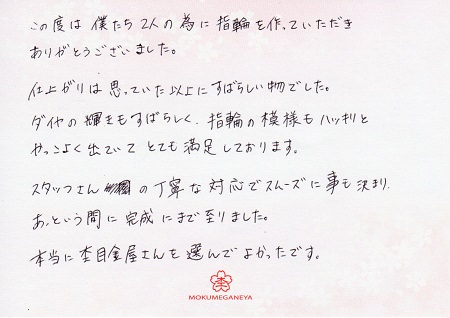 この度は僕たち2人の為に指輪を作っていただき
ありがとうございました。
仕上がりは思っていた以上にすばらしい物でした。
ダイヤの輝きもすばらしく、指輪の模様もハッキリと
かっこよく出ていてとても満足しております。
スタッフさんの丁寧な対応でスムーズに事も決まり、
あっという間に完成にまで至りました。
本当に杢目金屋さんを選んでよかったです。
杢
MOKUMEGANEYA